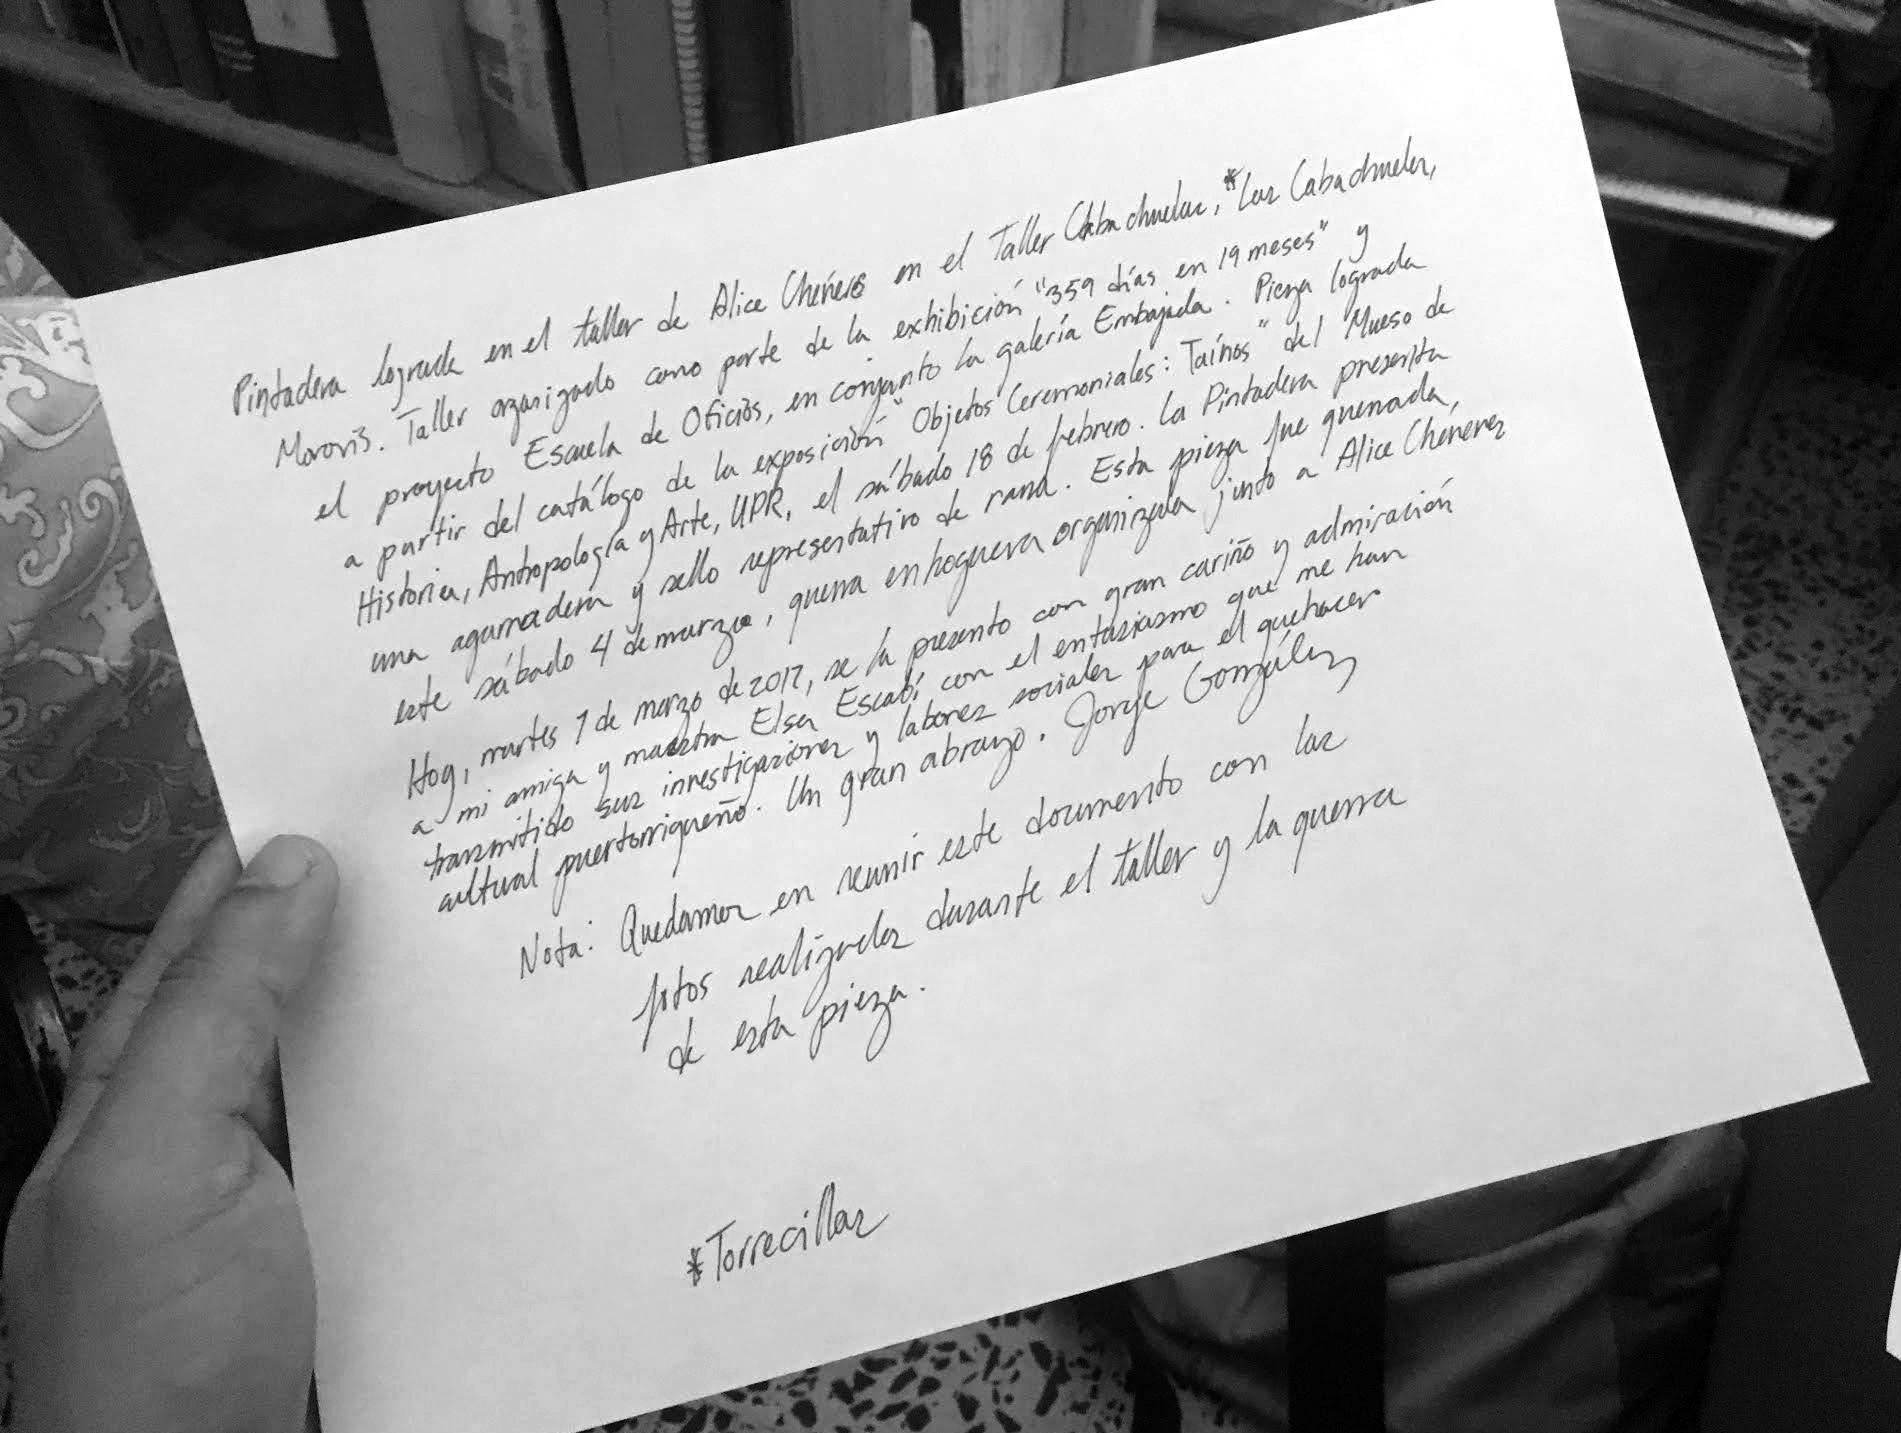 Pintadera lograda en el taller de Alice Chéveré en el Taller Cabachuelas,* Las Cabachuelas,
Morovis. Taller organizado como parte de la exhibición "359 días en 19 meses" y
el proyecto Escuela de Oficios, en conjunto la galería Embajada. Pieza lograda
a partir del catálogo de la exposición "Objetos Ceremoniales: Taínos" del Museo de
Historia, Antropología y Arte, UPR, el sábado 18 de febrero. La Pintadera presenta
una agarradera y sello representativo de rana. Esta pieza fue quemada,
este sábado 4 de marzo, quema en hoguera organizada junto a Alice Chéverez
Hoy, martes 7 de marzo de 2017, se la presento con gran cariño y admiración
a mi amiga y maestra Elsa Escabí con el entusiasmo que me han
transmitido sus investigaciones y labores sociales para el quehacer
cultural puertorriqueño. Un gran abrazo. Jorge González
Nota: Quedamos en reunir este documento con las
fotos realizadas durante el taller y la quema
de esta pieza.
*Torrecillas